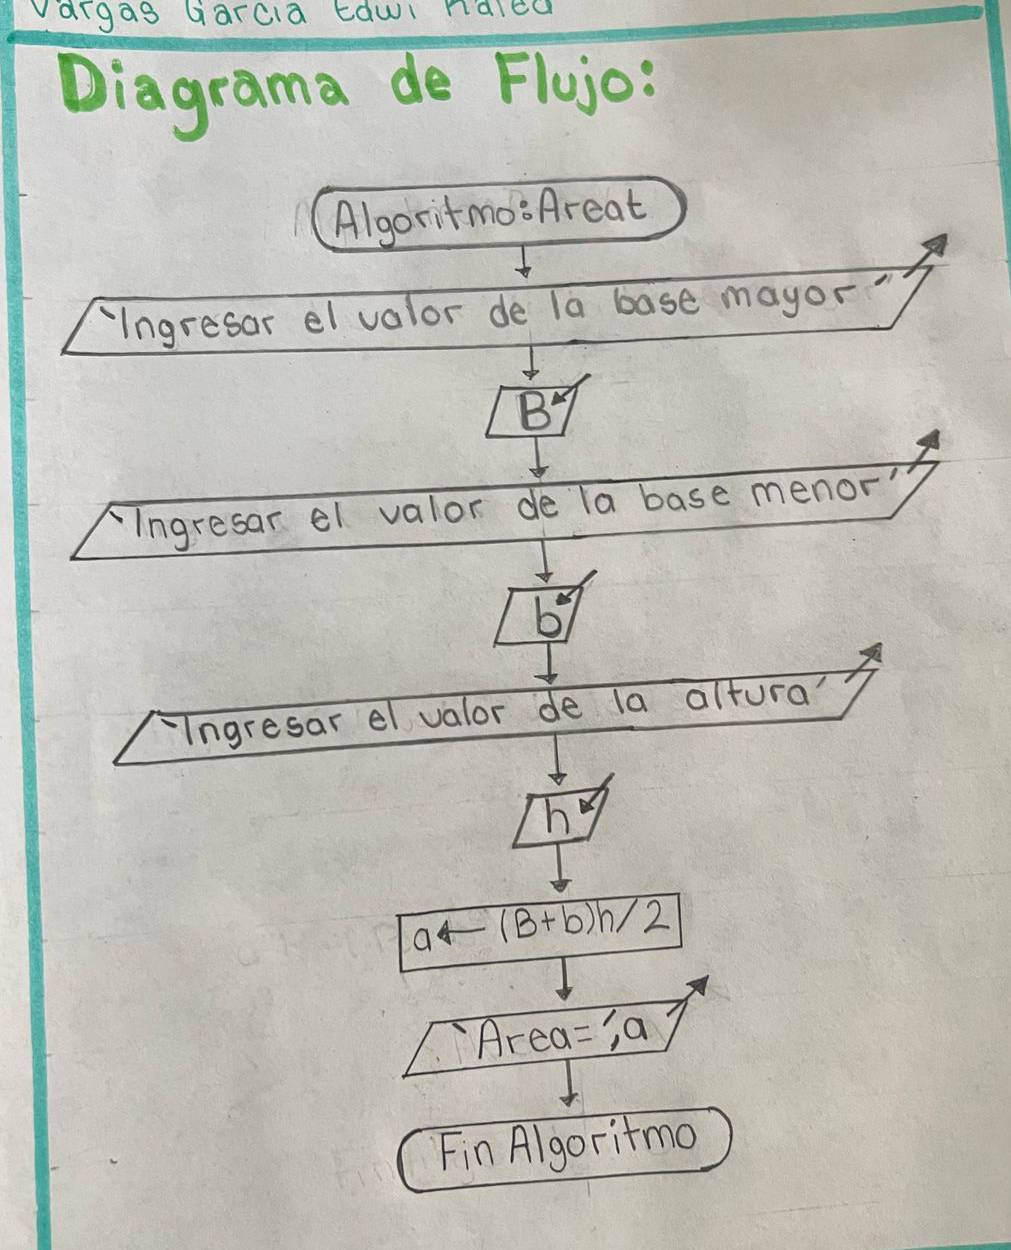 Vargas Garcia Edwi
Diagrama de Flujo:
Algoritmo: Areat
`Ingresar el valor de la base mayor´
B
`Ingresar el valor de la base menor´
b
`Ingresar el valor de la altura´
h
a← (B+b)h/2
`Area=´,a
Fin Algoritmo